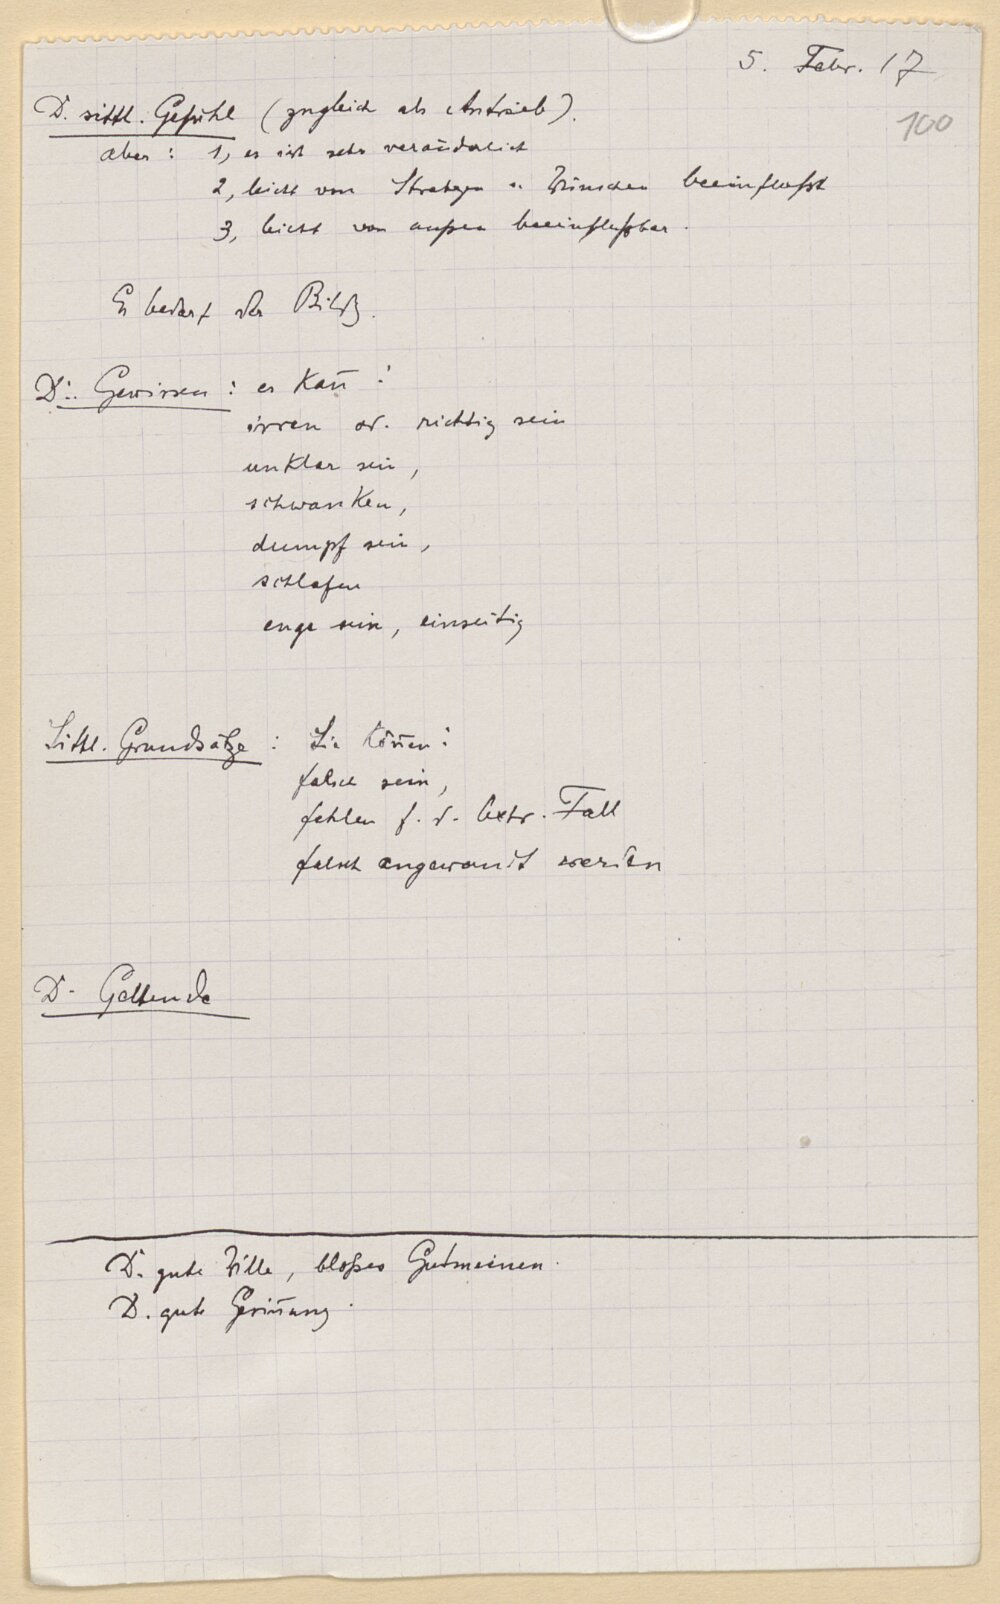 5. Febr. 17
100
D. sittl. Gefühl (zugleich als Antrieb).
aber: 1, es ist sehr veränderlich
2, leicht von Strebgn u. Wünschen beeinflußt
3, leicht von außen beeinflußbar.
Es bedarf der Bildg.
D. Gewissen: es kan̄:
irren od. richtig sein
unklar sein,
schwanken,
dumpf sein,
schlafen
enge sein, einseitig
Sittl. Grundsätze: Sie kön̄en:
falsch sein,
fehlen f. d. betr. Fall
falsch angewandt werden
D. Geltende
D. gute Wille, bloßes Gutmeinen.
D. gute Gesin̄ung.